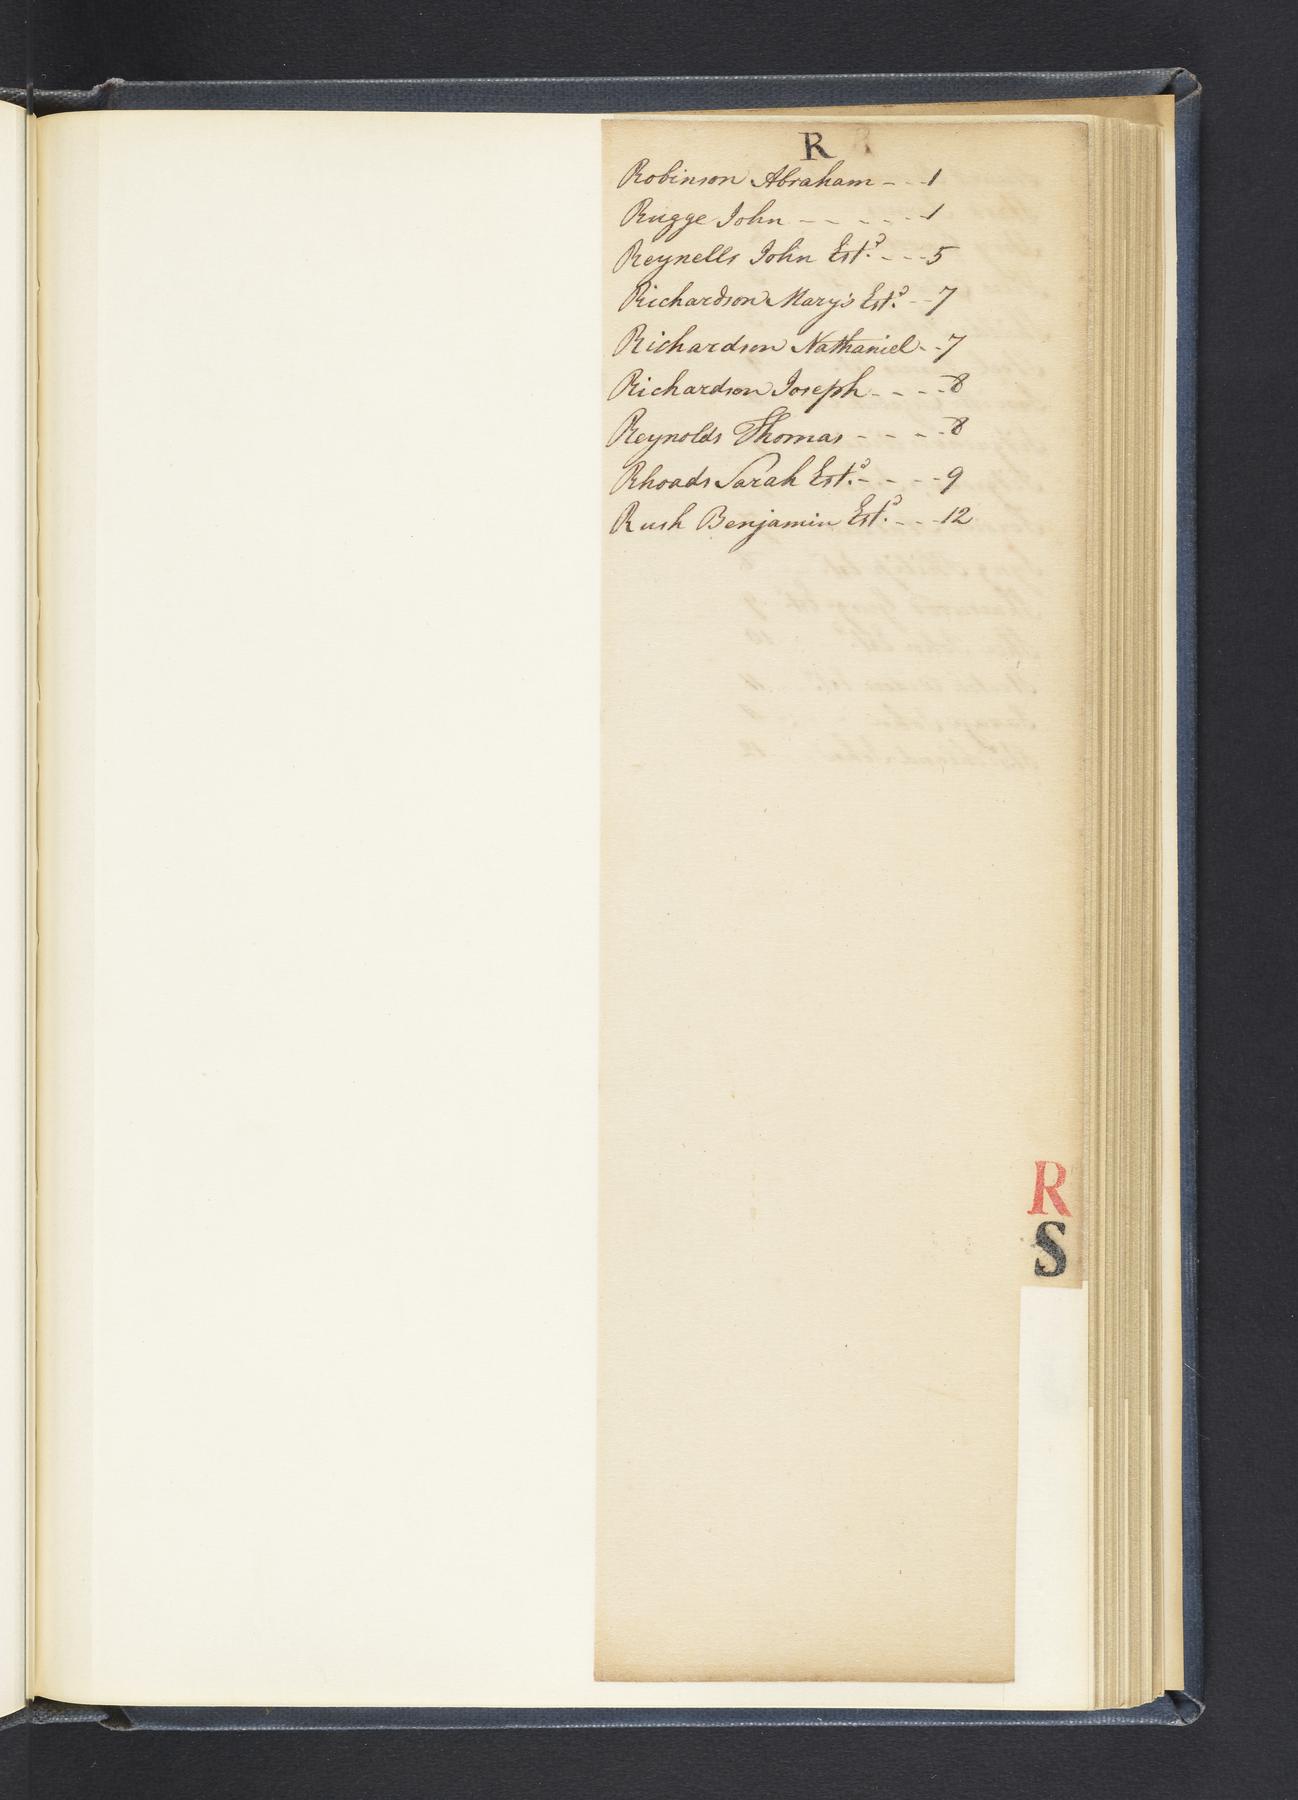 R
Robinson Abraham - - - 1
Rugge John - - - - - - 1
Reynells John Est.ᵈ - - - 5
Richardson Mary's Est.ᵈ - - 7
Richardson Nathaniel - - 7
Richardson Joseph - - - - 8
Reynolds Thomas - - - - 8
Rhoads Sarah Est.ᵈ - - - - 9
Rush Benjamin Est.ᵈ - - - 12
R
S